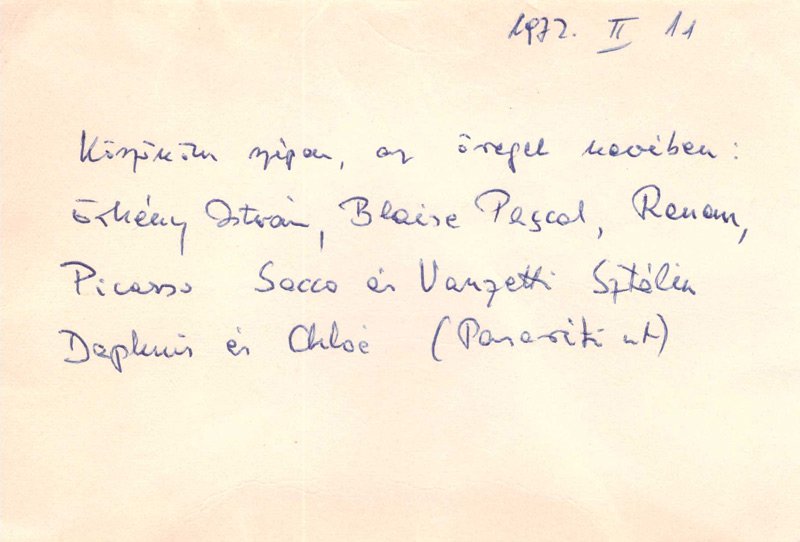 1972. II 11
Köszönöm szépen, az öregek nevében:
Örkény István, Blaise Pascal, Renan,
Picasso Sacco és Vanzetti Sztálin
Daphnis és Chloé (Pasaréti út)